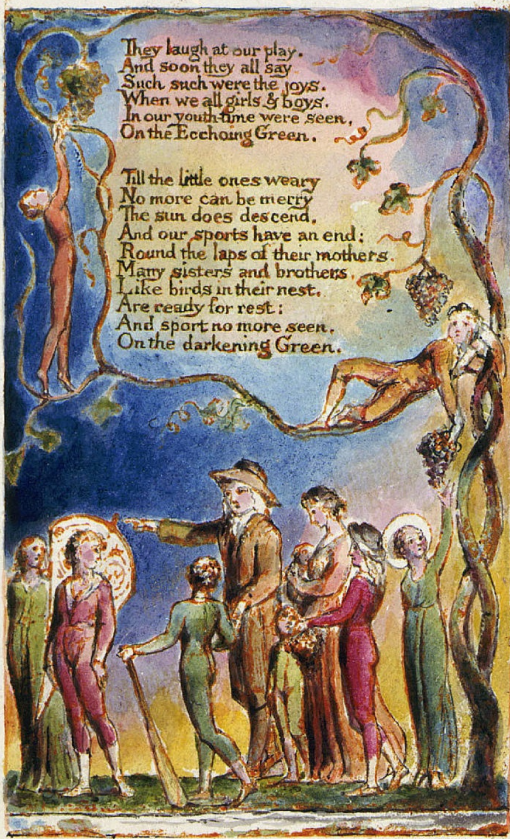 They laugh at our play.
And soon they all say
Such such were the joys.
When we all girls & boys.
In our youth-time were seen,
On the Ecchoing Green.
Till the little ones weary
No more can be merry
The sun does descend,
And our sports have an end:
Round the laps of their mothers.
Many sisters and brothers
Like birds in their nest,
Are ready for rest:
And sport no more seen,
On the darkening Green.